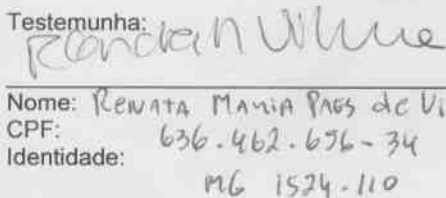 Testemunha:
Nome: RENATA MARIA PAES de Vi
CPF: 636.462.696-34
Identidade:
MG 1524.110